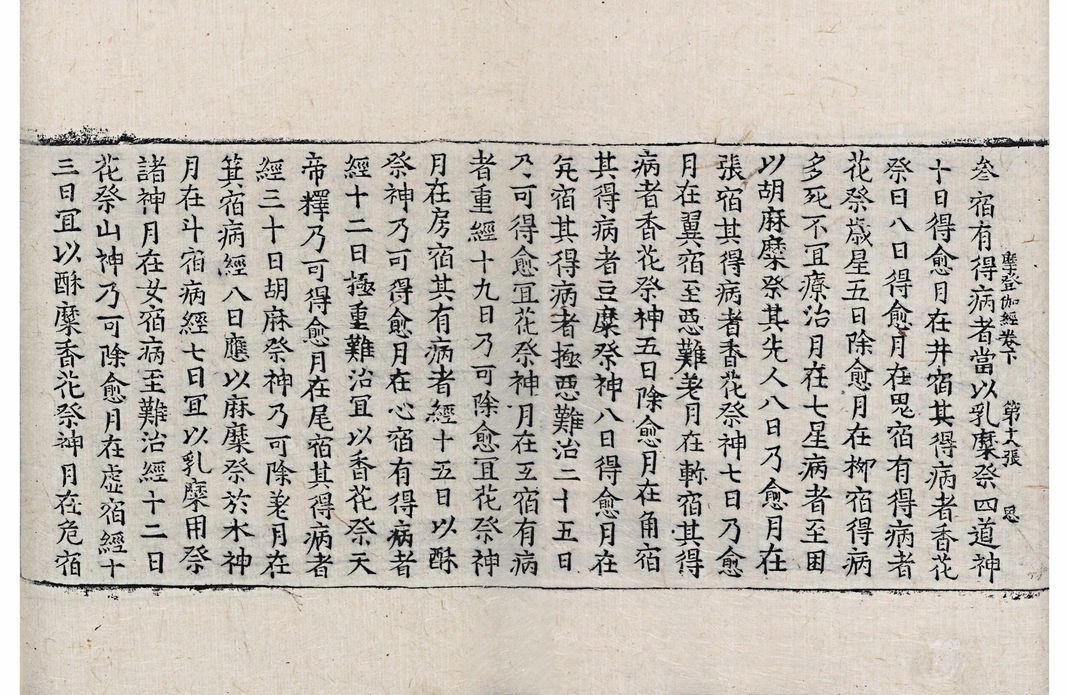 摩登伽經卷下 第十六張 思
叅宿有得病者當以乳糜祭四道神
十日得愈月在井宿其得病者香花
祭日八日得愈月在鬼宿有得病者
花祭歲星五日除愈月在柳宿得病
多死不冝療治月在七星病者至困
以胡麻糜祭其先人八日乃愈月在
張宿其得病者香花祭神七日乃愈
月在翼宿至惡難差月在軫宿其得
病者香花祭神五日除愈月在角宿
其得病者豆糜祭神八日得愈月在
亢宿其得病者極惡難治二十五日
乃可得愈冝花祭神月在氐宿有病
者重經十九日乃可除愈冝花祭神
月在房宿其有病者經十五日以酥
祭神乃可得愈月在心宿有得病者
經十二日極重難治冝以香花祭天
帝釋乃可得愈月在尾宿其得病者
經三十日胡麻祭神乃可除差月在
箕宿病經八日應以麻糜祭於水神
月在斗宿病經七日冝以乳糜用祭
諸神月在女宿病至難治經十二日
花祭山神乃可除愈月在虛宿經十
三日冝以酥糜香花祭神月在危宿